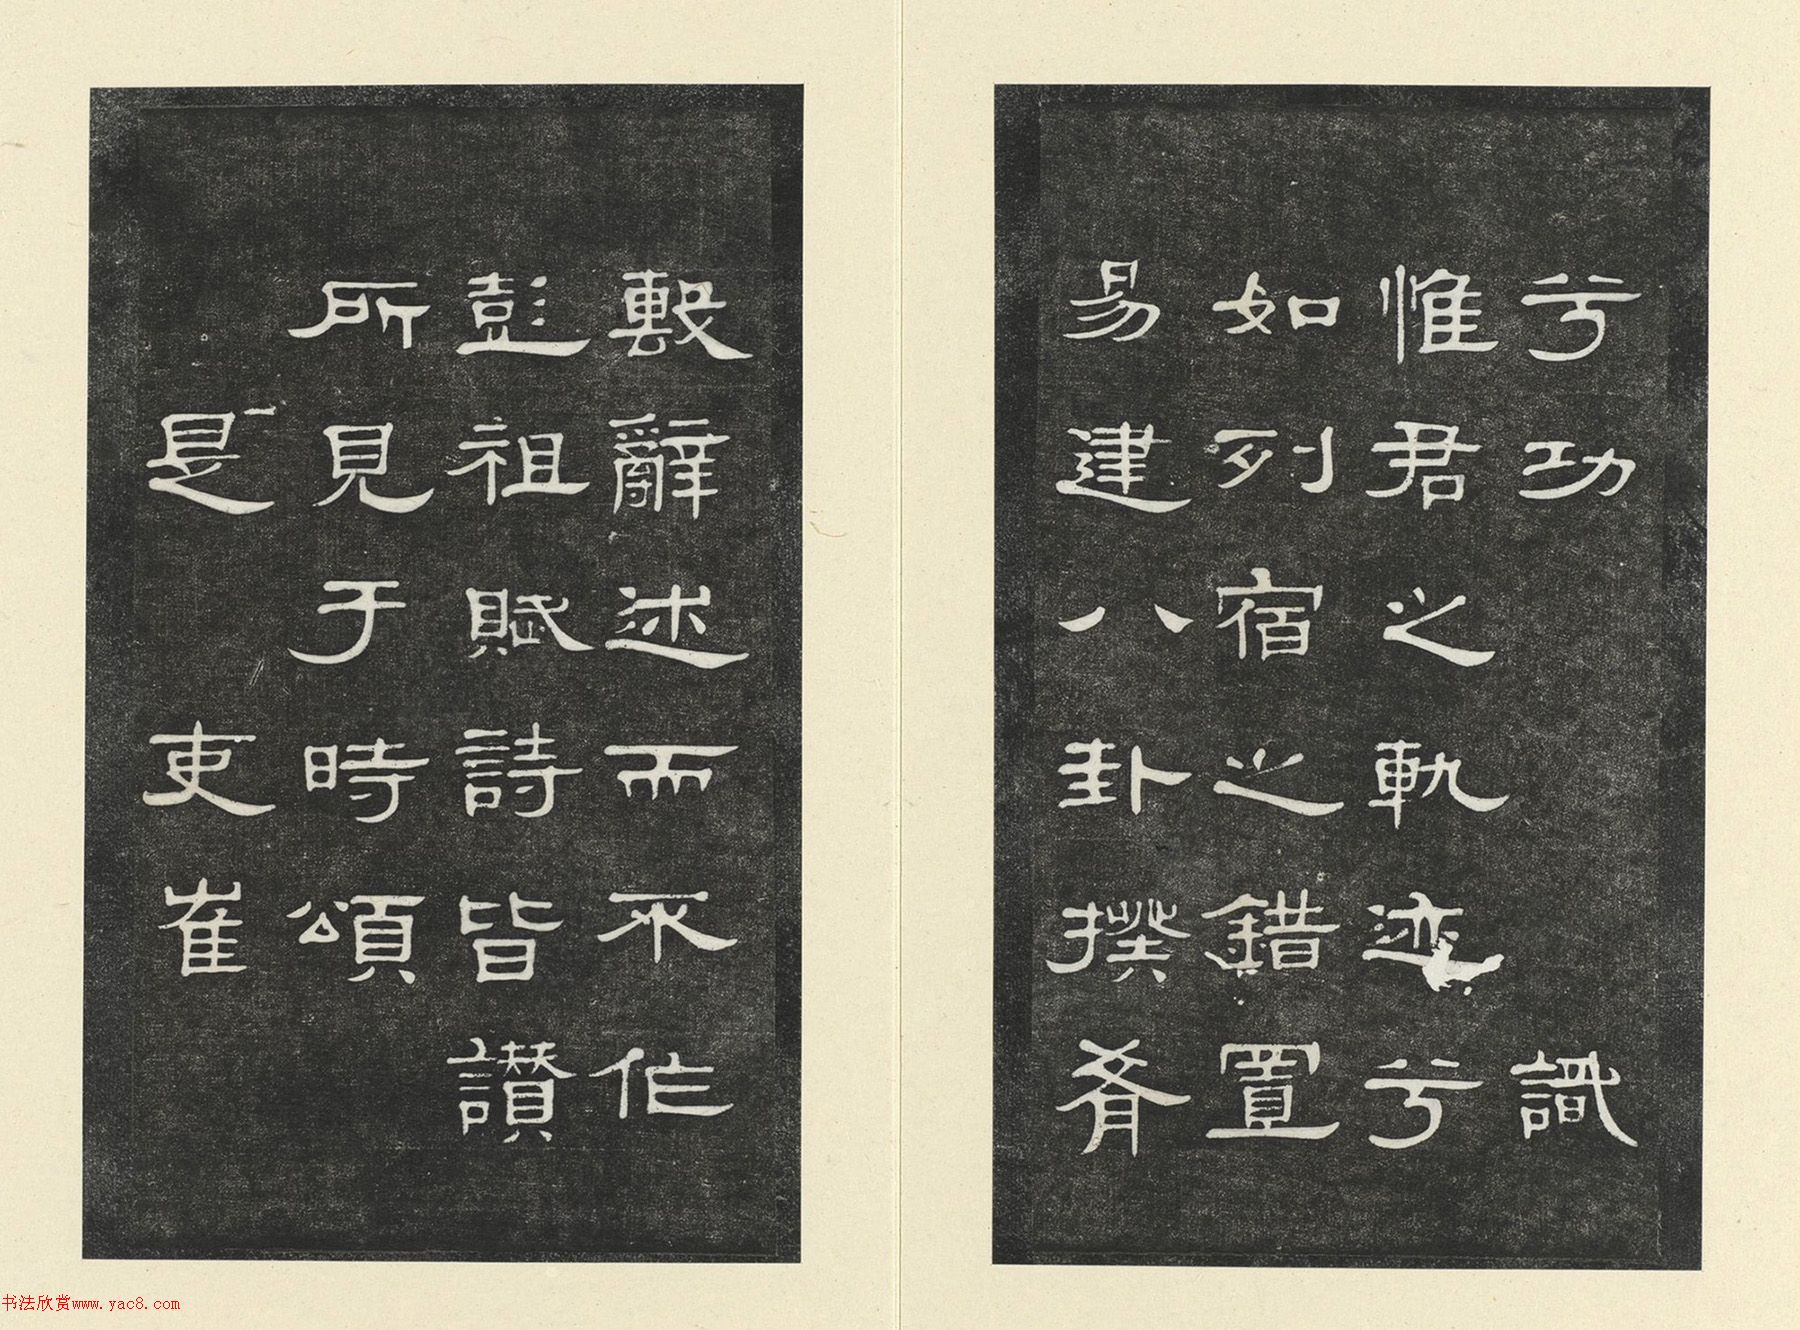 兮功識
惟君之軌迹兮
如列宿之錯置
易建八卦揆肴
毄辭述而不作
彭祖賦詩皆讃
所見于時頌
是吏崔
书法欣赏www.yac8.com